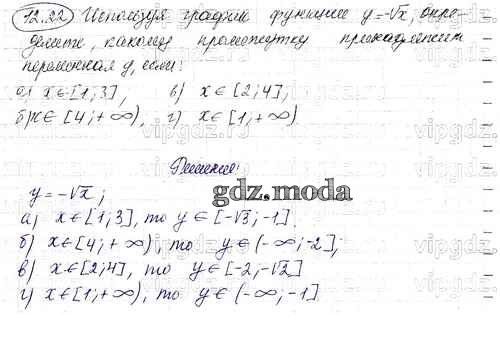 12.22 Используя график функции y=-√x, опре-
делите, какому промежутку принадлежит
переменная y, если:
а) x∈[1;3], в) x∈[2;4],
б) x∈[4;+∞), г) x∈[1;+∞)
Решение:
y=-√x;
gdz.moda
а) x∈[1;3], то y∈[-√3;-1].
б) x∈[4;+∞), то y∈(-∞;-2],
в) x∈[2;4], то y∈[-2;-√2]
г) x∈[1;+∞), то y∈(-∞;-1]